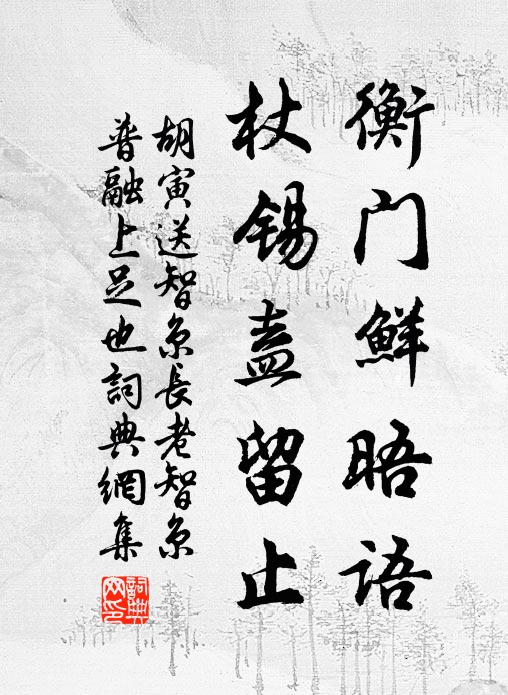 衡门鲜晤语
杖锡盍留止
胡寅送智京长老智京
普融上足也词典網集